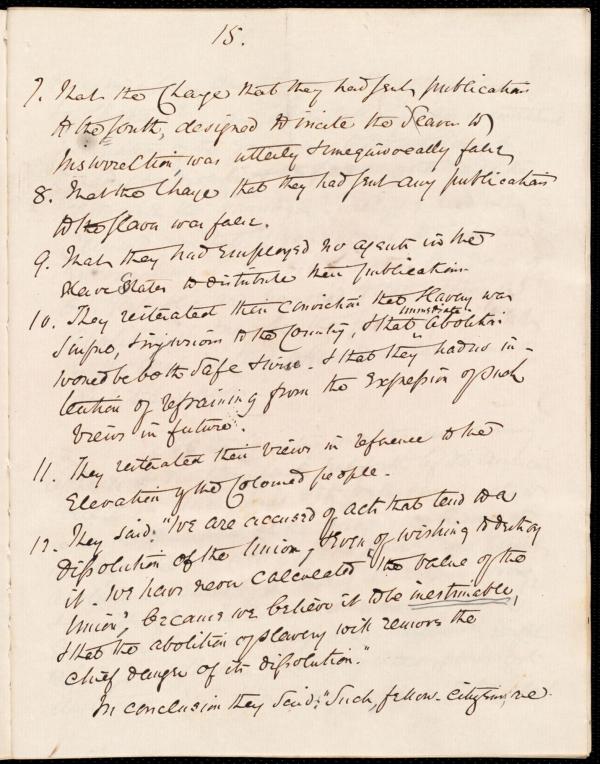 15.
7. That the Charge that they had sent publications
to the South, designed to incite the Slaves to
Insurrection, was utterly & unequivocally false,
8. That the Charge that they had sent any publications
to the slaves was false.
9. That they had Employed no agents in the
slave States to distribute their publications
10. They reiterated their conviction that Slavery was
sinful, & injurious to the Country, & that immediate abolition
would be both safe & wise. & that they had no in-
tention of refraining from the Expression of such
views in future.
11. They reiterated their views in reference to the
Elevation of the Colored people.
12. They said: "We are accused of acts that tend to a
Dissolution of the Union, & Even of wishing to destroy
it. We have never calculated "the value of the
Union", because we believe it to be inestimable,
& that the abolition of slavery will remove the
chief danger of its dissolution."
In conclusion they said: "Such, fellow-citizens, are